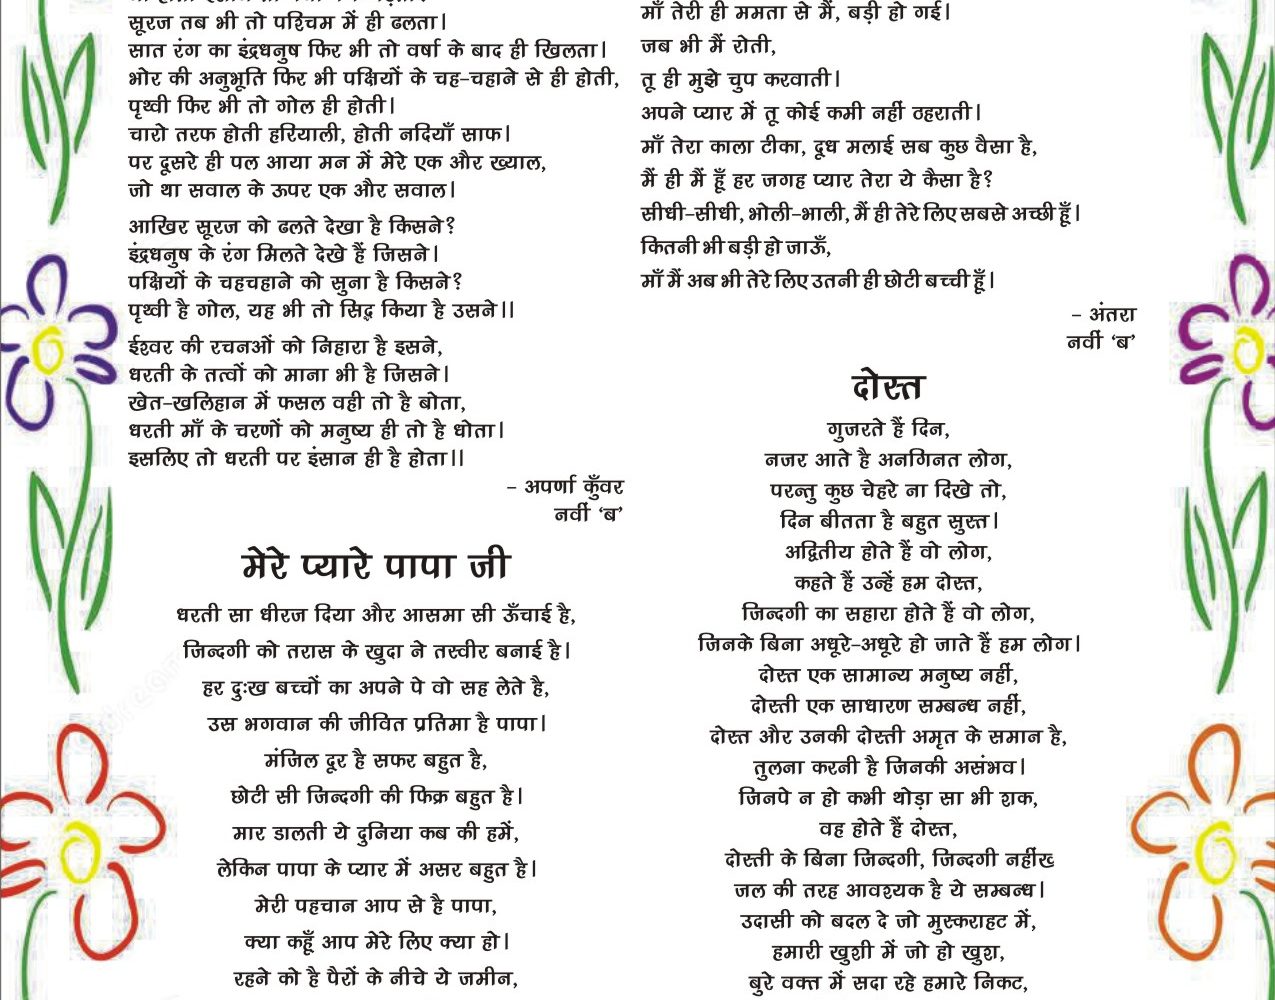 सूरज तब भी तो पश्चिम में ही ढलता।
सात रंग का इंद्रधनुष फिर भी तो वर्षा के बाद ही खिलता।
भोर की अनुभूति फिर भी पक्षियों के चह-चहाने से ही होती,
पृथ्वी फिर भी तो गोल ही होती।
चारो तरफ होती हरियाली, होती नदियाँ साफ।
पर दूसरे ही पल आया मन में मेरे एक और ख्याल,
जो था सवाल के ऊपर एक और सवाल।
आखिर सूरज को ढलते देखा है किसने?
इंद्रधनुष के रंग मिलते देखे हैं जिसने।
पक्षियों के चहचहाने को सुना है किसने?
पृथ्वी है गोल, यह भी तो सिद्ध किया है उसने।।
ईश्वर की रचनओं को निहारा है इसने,
धरती के तत्वों को माना भी है जिसने।
खेत-खलिहान में फसल वही तो है बोता,
धरती माँ के चरणों को मनुष्य ही तो है धोता।
इसलिए तो धरती पर इंसान ही है होता।।
- अपर्णा कुँवर
नवीं ‘ब’
मेरे प्यारे पापा जी
धरती सा धीरज दिया और आसमा सी ऊँचाई है,
जिन्दगी को तरास के खुदा ने तस्वीर बनाई है।
हर दुःख बच्चों का अपने पे वो सह लेते है,
उस भगवान की जीवित प्रतिमा है पापा।
मंजिल दूर है सफर बहुत है,
छोटी सी जिन्दगी की फिक्र बहुत है।
मार डालती ये दुनिया कब की हमें,
लेकिन पापा के प्यार में असर बहुत है।
मेरी पहचान आप से है पापा,
क्या कहूँ आप मेरे लिए क्या हो।
रहने को है पैरों के नीचे ये जमीन,
माँ तेरी ही ममता से मैं, बड़ी हो गई।
जब भी मैं रोती,
तू ही मुझे चुप करवाती।
अपने प्यार में तू कोई कमी नहीं ठहराती।
माँ तेरा काला टीका, दूध मलाई सब कुछ वैसा है,
मैं ही मैं हूँ हर जगह प्यार तेरा ये कैसा है?
सीधी-सीधी, भोली-भाली, मैं ही तेरे लिए सबसे अच्छी हूँ।
कितनी भी बड़ी हो जाऊँ,
माँ मैं अब भी तेरे लिए उतनी ही छोटी बच्ची हूँ।
- अंतरा
नवीं ‘ब’
दोस्त
गुजरते हैं दिन,
नजर आते है अनगिनत लोग,
परन्तु कुछ चेहरे ना दिखे तो,
दिन बीतता है बहुत सुस्त।
अद्वितीय होते हैं वो लोग,
कहते हैं उन्हें हम दोस्त,
जिन्दगी का सहारा होते हैं वो लोग,
जिनके बिना अधूरे-अधूरे हो जाते हैं हम लोग।
दोस्त एक सामान्य मनुष्य नहीं,
दोस्ती एक साधारण सम्बन्ध नहीं,
दोस्त और उनकी दोस्ती अमृत के समान है,
तुलना करनी है जिनकी असंभव।
जिनपे न हो कभी थोड़ा सा भी शक,
वह होते हैं दोस्त,
दोस्ती के बिना जिन्दगी, जिन्दगी नहींख
जल की तरह आवश्यक है ये सम्बन्ध।
उदासी को बदल दे जो मुस्कराहट में,
हमारी खुशी में जो हो खुश,
बुरे वक्त में सदा रहे हमारे निकट,